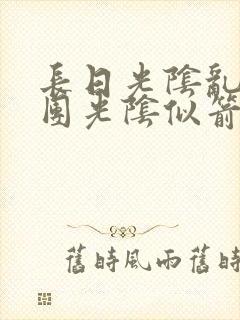 長日光陰亂
園光陰似箭
舊時風雨舊時